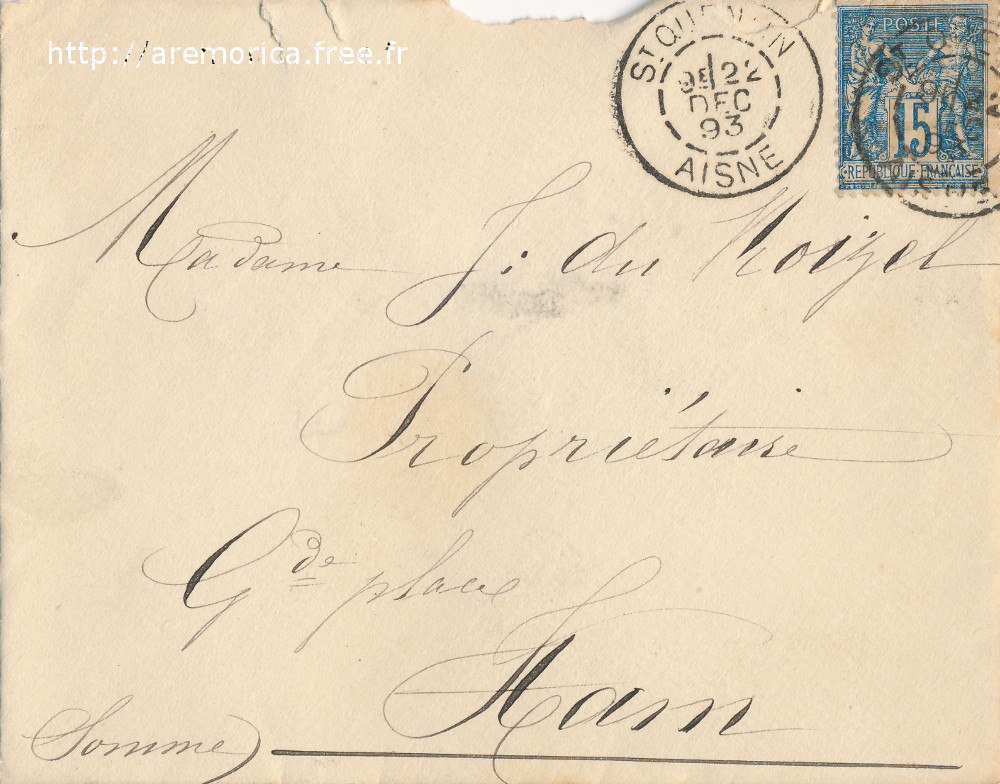 http://aremorica.free.fr
ST QUENTIN
9E 22
DEC
93
AISNE
POSTE
15
REPUBLIQUE FRANCAISE
Madame J. du Roizel
Propriétaire
Gde place
Ham
(Somme)